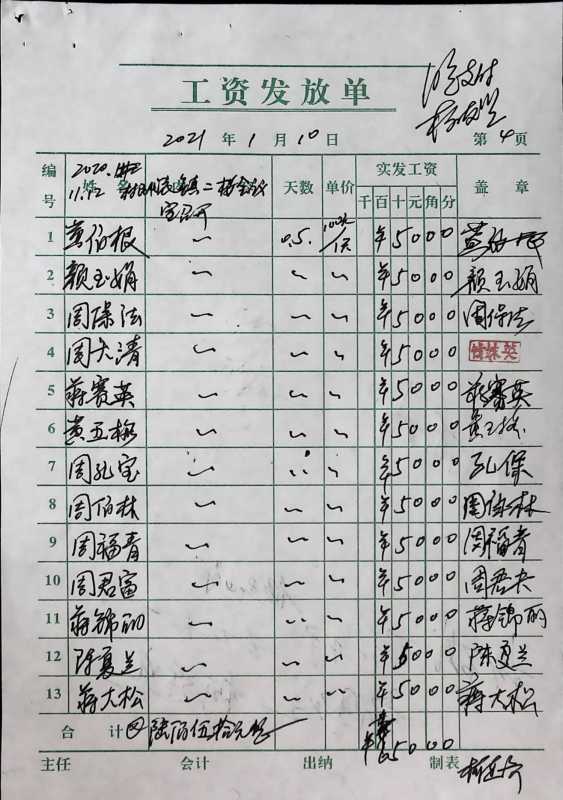 工资发放单
2021 年 1 月 10 日 第 4 页
编号 姓名 天数 单价 实发工资 盖章
千 百 十 元 角 分
2020.
11.12
1 黄伯根 〃 0.5. 100元/天 ¥50 00 黄伯根
2 颜玉娟 〃 〃 〃 ¥5000 颜玉娟
3 周保法 〃 〃 〃 ¥5000 周保法
4 周大清 〃 〃 〃 ¥5000
5 蒋赛英 〃 〃 〃 ¥5000 蒋赛英
6 黄五梅 〃 〃 〃 ¥5000
7 周孔宝 〃 〃 〃 ¥5000 孔保
8 周伯林 〃 〃 〃 ¥5000 周伯林
9 周福青 〃 〃 〃 ¥5000 周福青
10 周君富 〃 〃 〃 ¥5000 周君夫
11 蒋锦丽 〃 〃 〃 ¥5000 蒋锦丽
12 陈夏兰 〃 〃 〃 ¥5000 陈夏兰
13 蒋大松 〃 〃 〃 ¥5000 蒋大松
合计 陆佰伍拾元整 ¥65000
主任 会计 出纳 制表